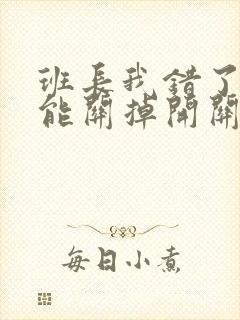 班长我错了
能關掉開關
每日小煮